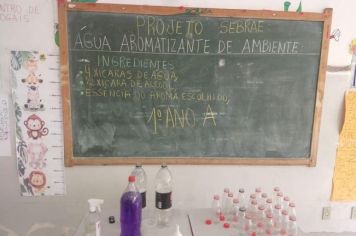 PROJETO SEBRAE
ÁGUA AROMATIZANTE DE AMBIENTE:
INGREDIENTES
4 XÍCARAS DE ÁGUA,
XÍCARA DE ÁLCOOL,
ESSÊNCIA DO AROMA ESCOLHIDO,
1º ANO A